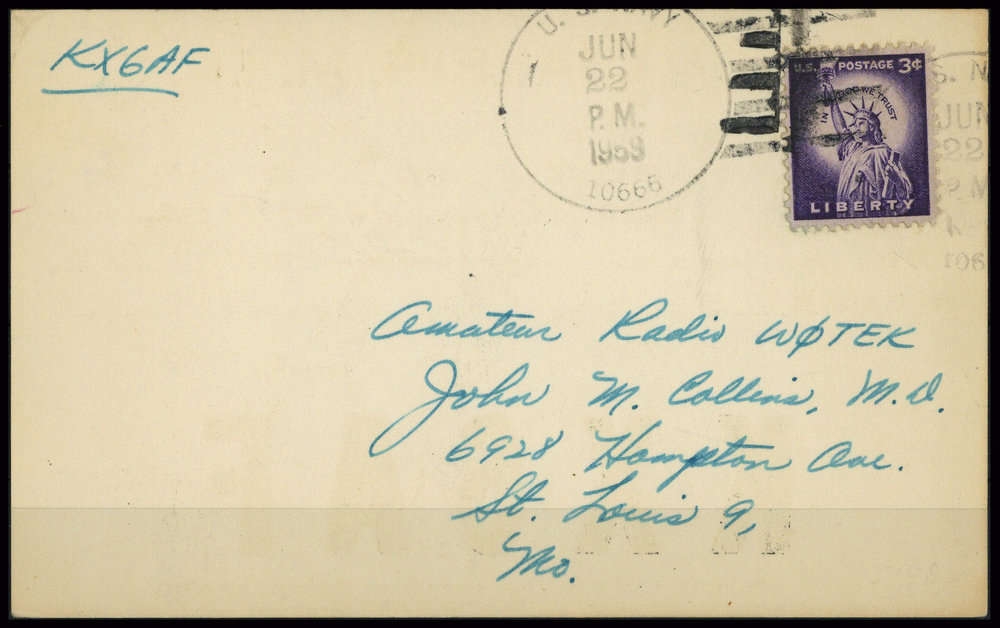 KX6AF
U. S. NAVY
JUN
22
P.M.
1959
10666
U.S. POSTAGE 3¢
IN GOD WE TRUST
LIBERTY
S. N
JUN
22
P.M
106
Amateur Radio WØTEK
John M. Collins, M.D.
6928 Hampton Ave.
St. Louis 9,
Mo.